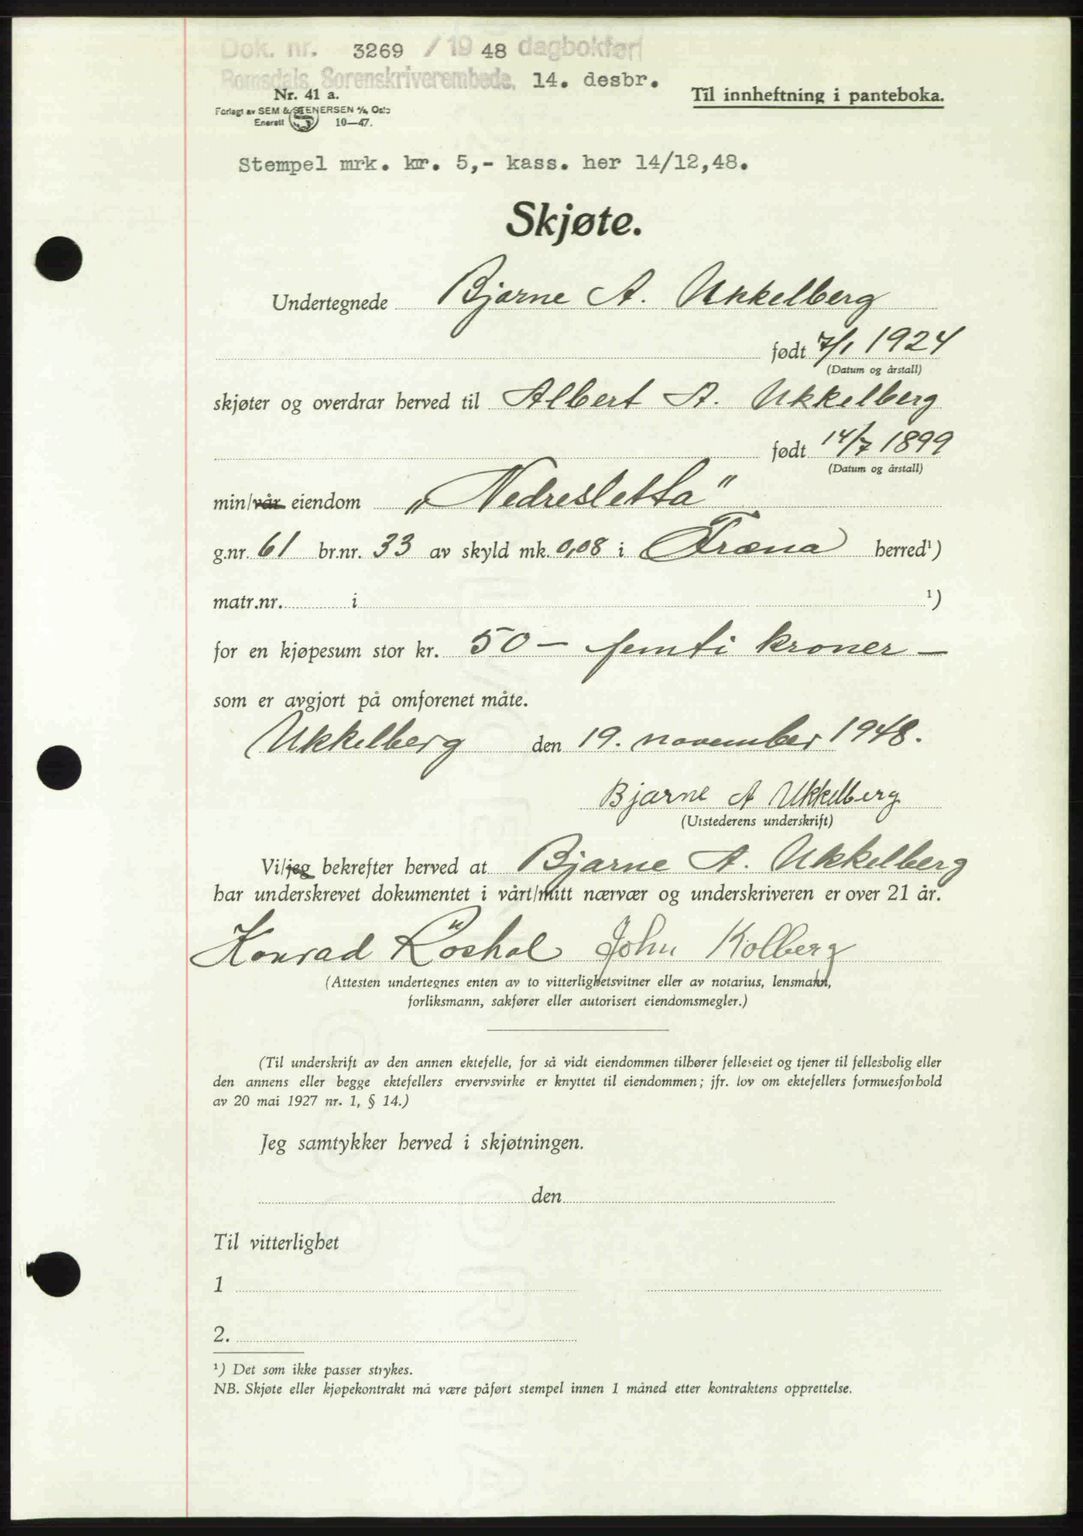 Dok. nr. 3269 / 19 48 dagbokført
Romsdals Sorenskriverembede, 14. desbr.
Nr. 41 a.
Til innheftning i panteboka.
Forlagt av SEM & STENERSEN A/s, Oslo
Enerett S 10—47.
Stempel mrk. kr. 5,- kass. her 14/12,48.
Skjøte.
Undertegnede Bjarne A. Ukkelberg
født 7/1 1924
(Datum og årstall)
skjøter og overdrar herved til Albert A. Ukkelberg
født 14/7 1899
(Datum og årstall)
min/vår eiendom „Nedresletta"
g.nr. 61 br.nr. 33 av skyld mk. 0,08 i Fræna herred¹)
matr.nr. i ¹)
for en kjøpesum stor kr. 50 — femti kroner —
som er avgjort på omforenet måte.
Ukkelberg den 19. november 1948.
Bjarne A Ukkelberg
(Utstederens underskrift)
Vi/jeg bekrefter herved at Bjarne A. Ukkelberg
har underskrevet dokumentet i vårt/mitt nærvær og underskriveren er over 21 år.
Konrad Röshol John Kolberg
(Attesten undertegnes enten av to vitterlighetsvitner eller av notarius, lensmann,
forliksmann, sakfører eller autorisert eiendomsmegler.)
(Til underskrift av den annen ektefelle, for så vidt eiendommen tilhører felleseiet og tjener til fellesbolig eller
den annens eller begge ektefellers ervervsvirke er knyttet til eiendommen; jfr. lov om ektefellers formuesforhold
av 20 mai 1927 nr. 1, § 14.)
Jeg samtykker herved i skjøtningen.
den
Til vitterlighet
1
2.
¹) Det som ikke passer strykes.
NB. Skjøte eller kjøpekontrakt må være påført stempel innen 1 måned etter kontraktens opprettelse.